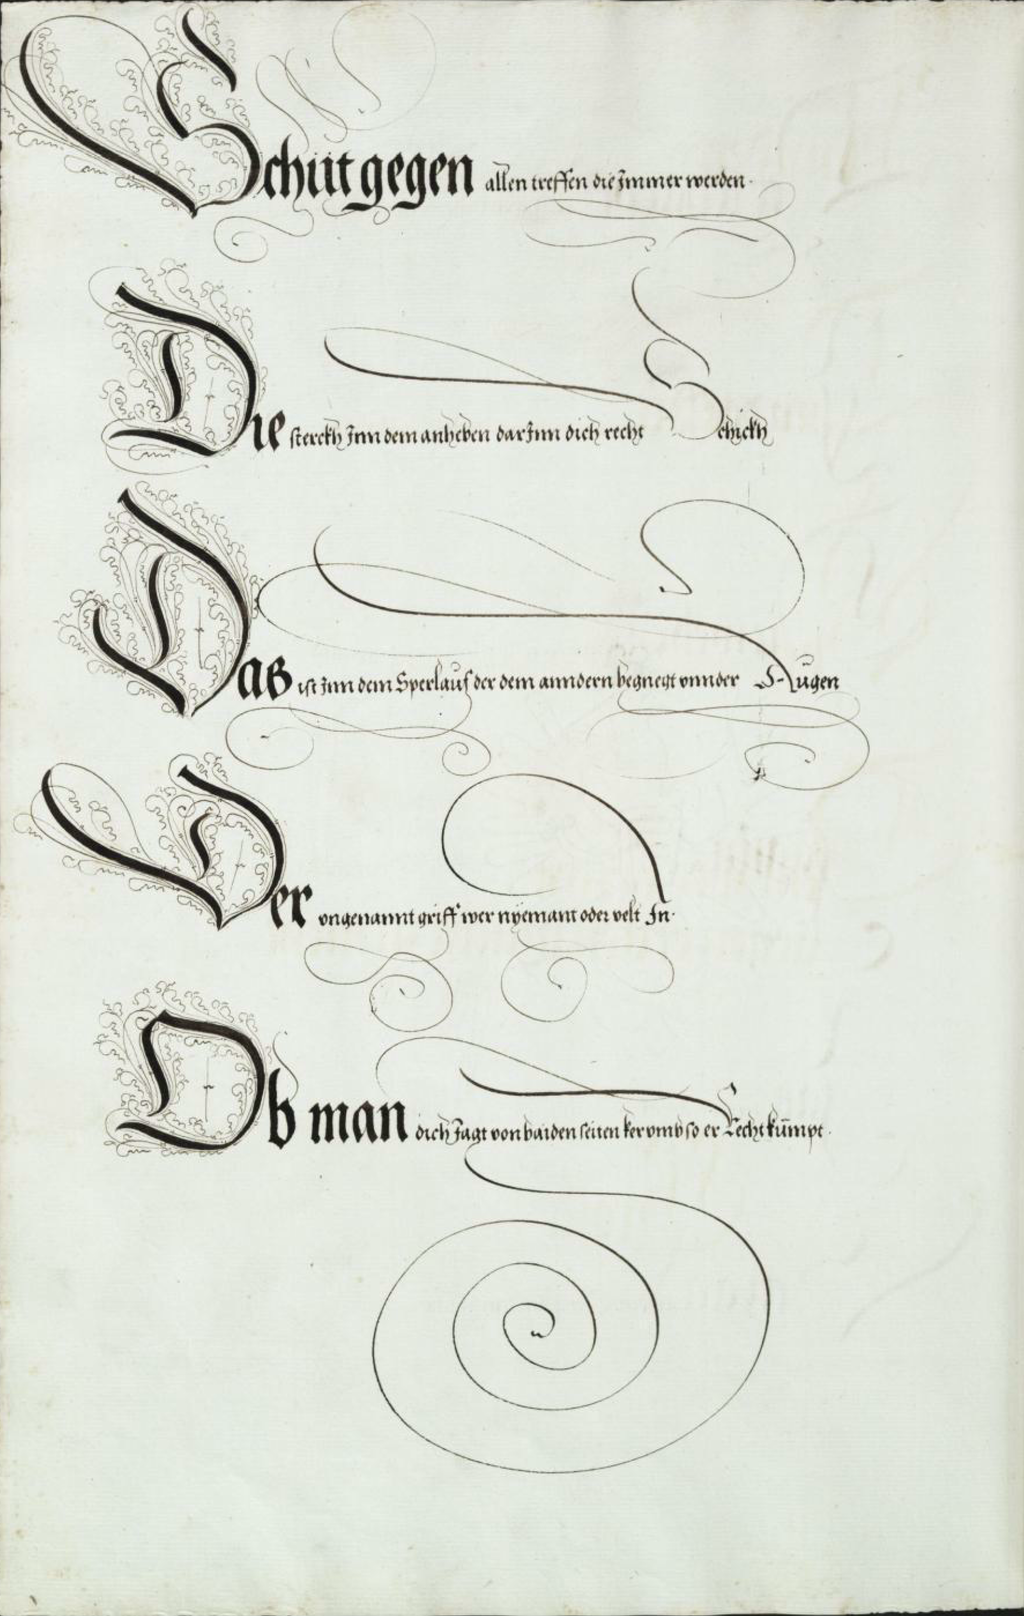 Schüt gegen allen treffen die Immer werden.
Die sterckh Inn dem anheben darInn dich recht Schickh
Das ist Inn dem Sperlauf der dem anndern begnegt vnnder Augen
Der vngenannt griff wer nyemant oder velt In.
Ob man dich Jagt von baiden seiten ker vmb so er Recht kumpt.